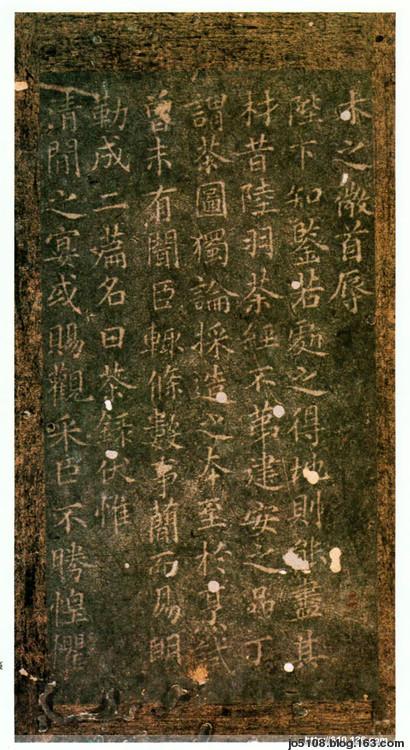 木之微首辱
陛下知鋻若處之得地則能盡其
材昔陸羽茶經不第建安之品丁
謂茶圖獨論採造之本至於烹試
曾未有聞臣輒條數事簡而易明
勒成二篇名曰茶錄伏惟
清閒之宴或賜觀采臣不勝惶懼
jo5108.blog.163.com